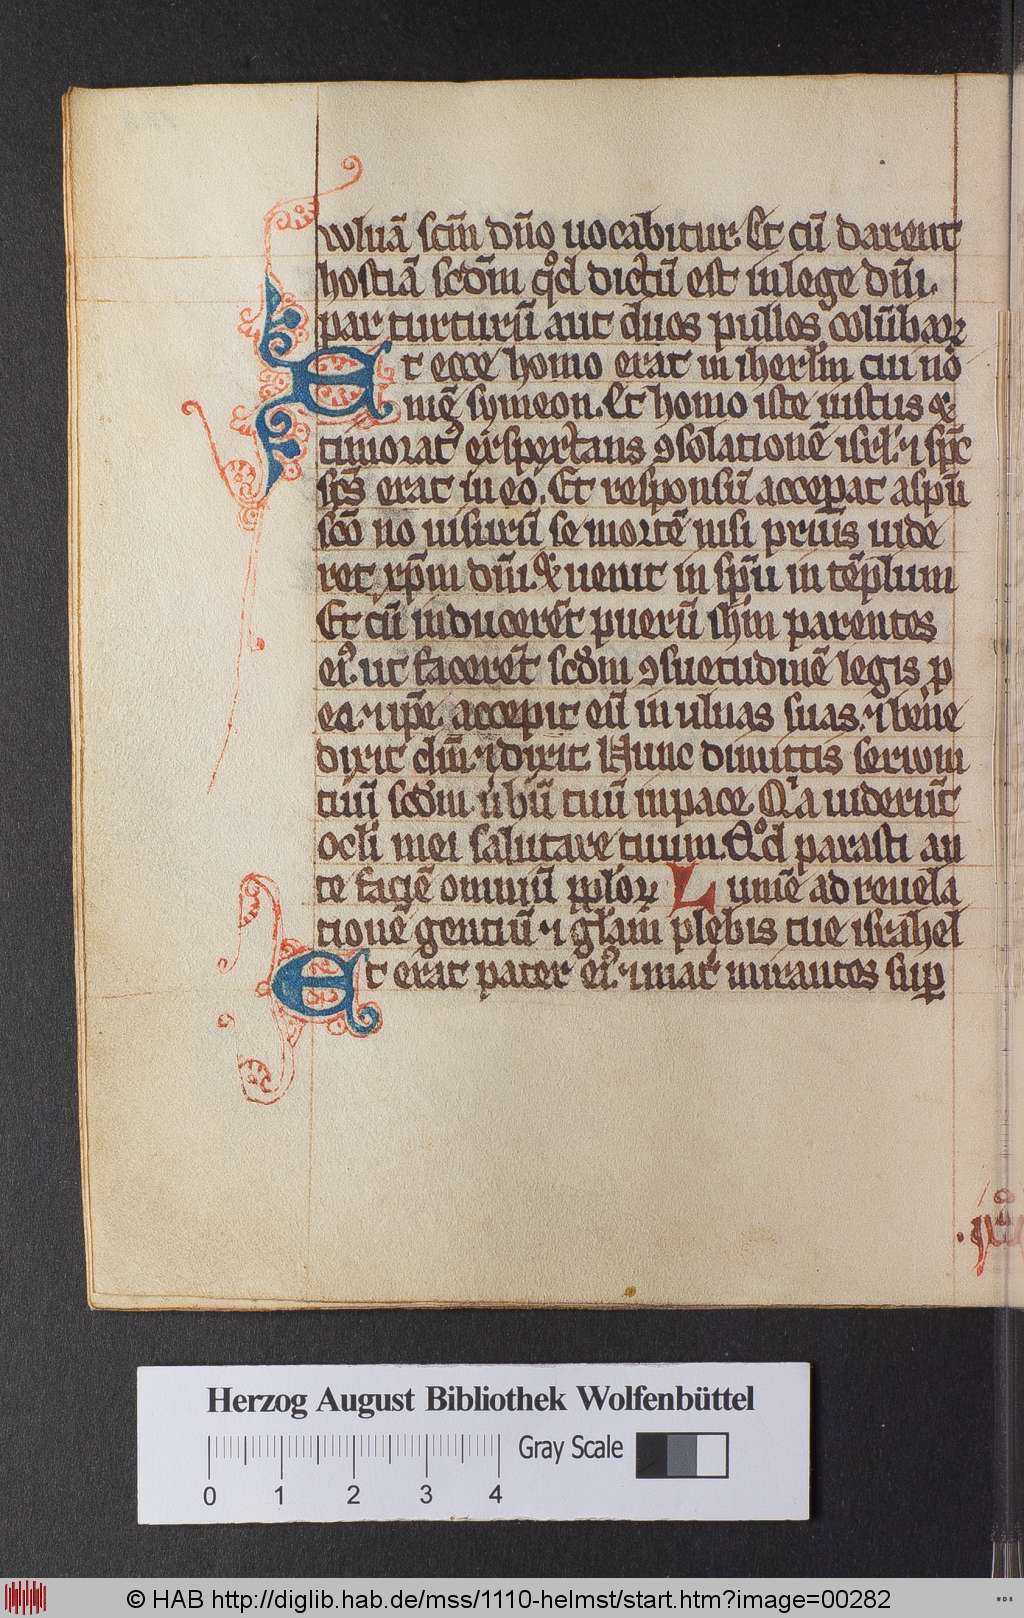 wluā scm̄ dn̄o uocabitur. Et cū darent
hostiā scd̄m qd̊ dictū est in lege dn̄i.
par turturū aut duos pullos colūbaꝝ
Et ecce homo erat in iherl̄m cui no
mē symeon. Et homo iste iustus ⁊
timorat᾽ exspectans ꝯsolationē isrl̄. ⁊ spc̄
sc̄s erat in eo. Et responsū acceꝑat a spū
sc̄o no uisurū se mortē nisi prius uide
ret xp̄m dn̄i. Et uenit in spū in tēplum
Et cū inducerēt puerū ih̄m parentes
ei᾽. ut facerēt scd̄m ꝯsuetudinē legis ꝑ
eo. ⁊ ip̄e accepit eū in ulnas suas. ⁊ bene
dixit dm̄. ⁊ dixit. Nunc dimittis seruum
tuū scd̄m ūbū tuū in pace Qͥa uiderūt
ocl̄i mei salutare tuum. Qd̊ parasti an
te faciē omniū pp̄loꝝ Lumē ad reuela
tionē gentiū. ⁊ gl̄am plebis tue israhel
Et erat pater ei᾽. ⁊ mat̄ mirantes suꝑ
Herzog August Bibliothek Wolfenbüttel
Gray Scale
0 1 2 3 4
© HAB http://diglib.hab.de/mss/1110-helmst/start.htm?image=00282